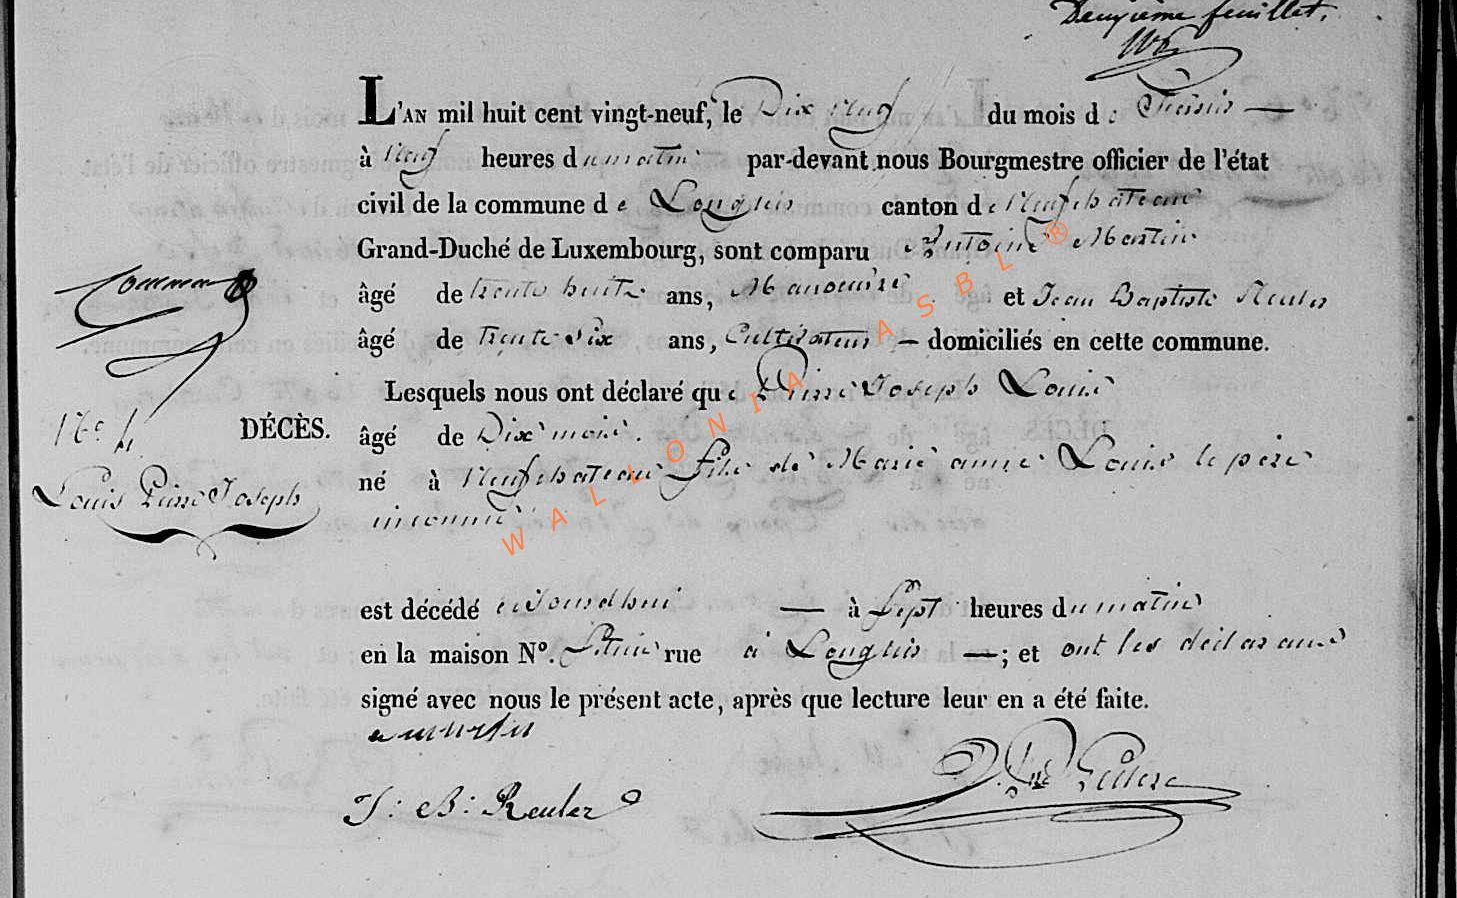 Deuxième feuillet.
L'AN mil huit cent vingt-neuf, le Dix Neuf du mois de
à Neuf heures du matin par-devant nous Bourgmestre officier de l'état
civil de la commune de Longlier canton de Neufchateau
Grand-Duché de Luxembourg, sont comparu Antoine Martin
âgé de trente huit ans, Manoeuvre et Jean Baptiste Reuler
âgé de trente Six ans, Cultivateur — domiciliés en cette commune.
Lesquels nous ont déclaré que Pierre Joseph Louis
DÉCÈS. âgé de Dix mois.
né à Neufchateau fils de Marie Louis le père
inconnu
No 4
Louis Pierre Joseph
est décédé aujourdhui — à Sept heures du matin
en la maison No. rue à Longlier —; et ont les déclarans
signé avec nous le présent acte, après que lecture leur en a été faite.
a martin
J: B: Reuler
WALLONIA ASBL ®